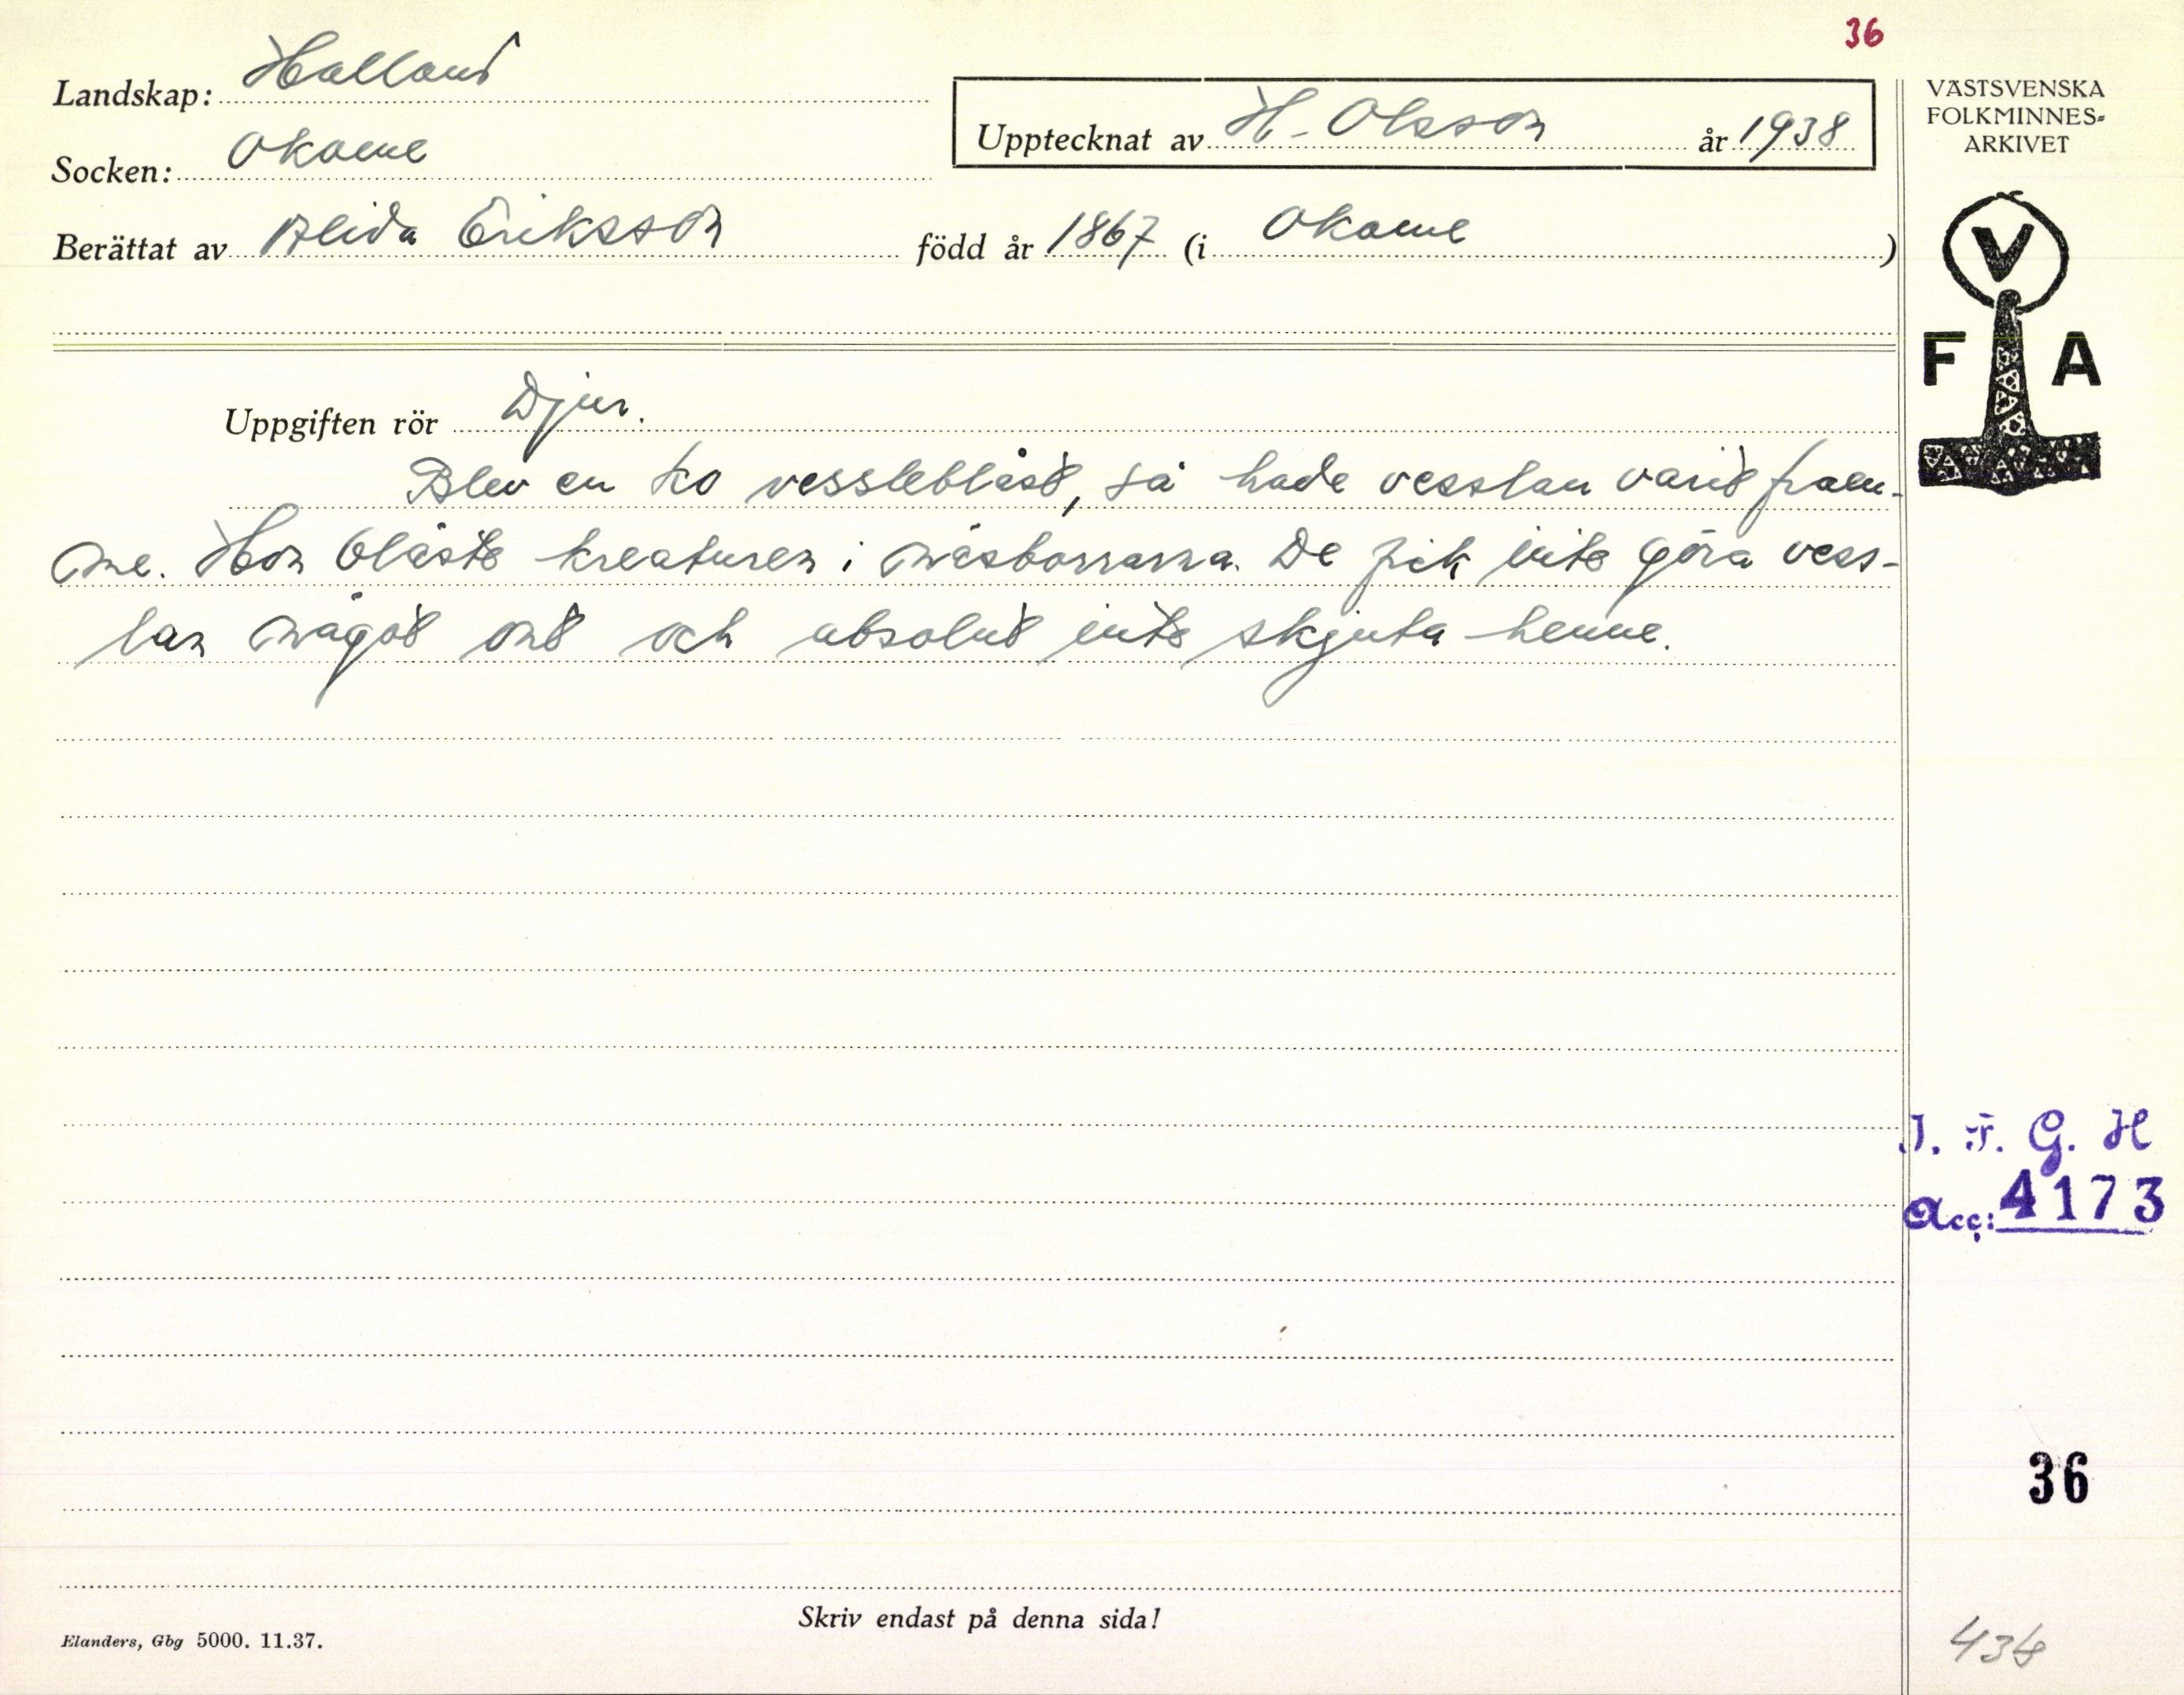 36
Landskap: Halland
Socken: Okome
Upptecknat av H. Olsson år 1938
Berättat av Alida Eriksson född år 1867 (i Okome)
VÄSTSVENSKA
FOLKMINNES-
ARKIVET
V
F A
Uppgiften rör Djur.
Blev en ko vessleblåst, så hade vesslan varit fram-
me. Hon blåste kreaturen i näsborrarna. De fick inte göra vess-
lan något ont och absolut inte skjuta henne.
I. F. G. H
Acc: 4173
36
Skriv endast på denna sida!
Elanders, Gbg 5000. 11.37.